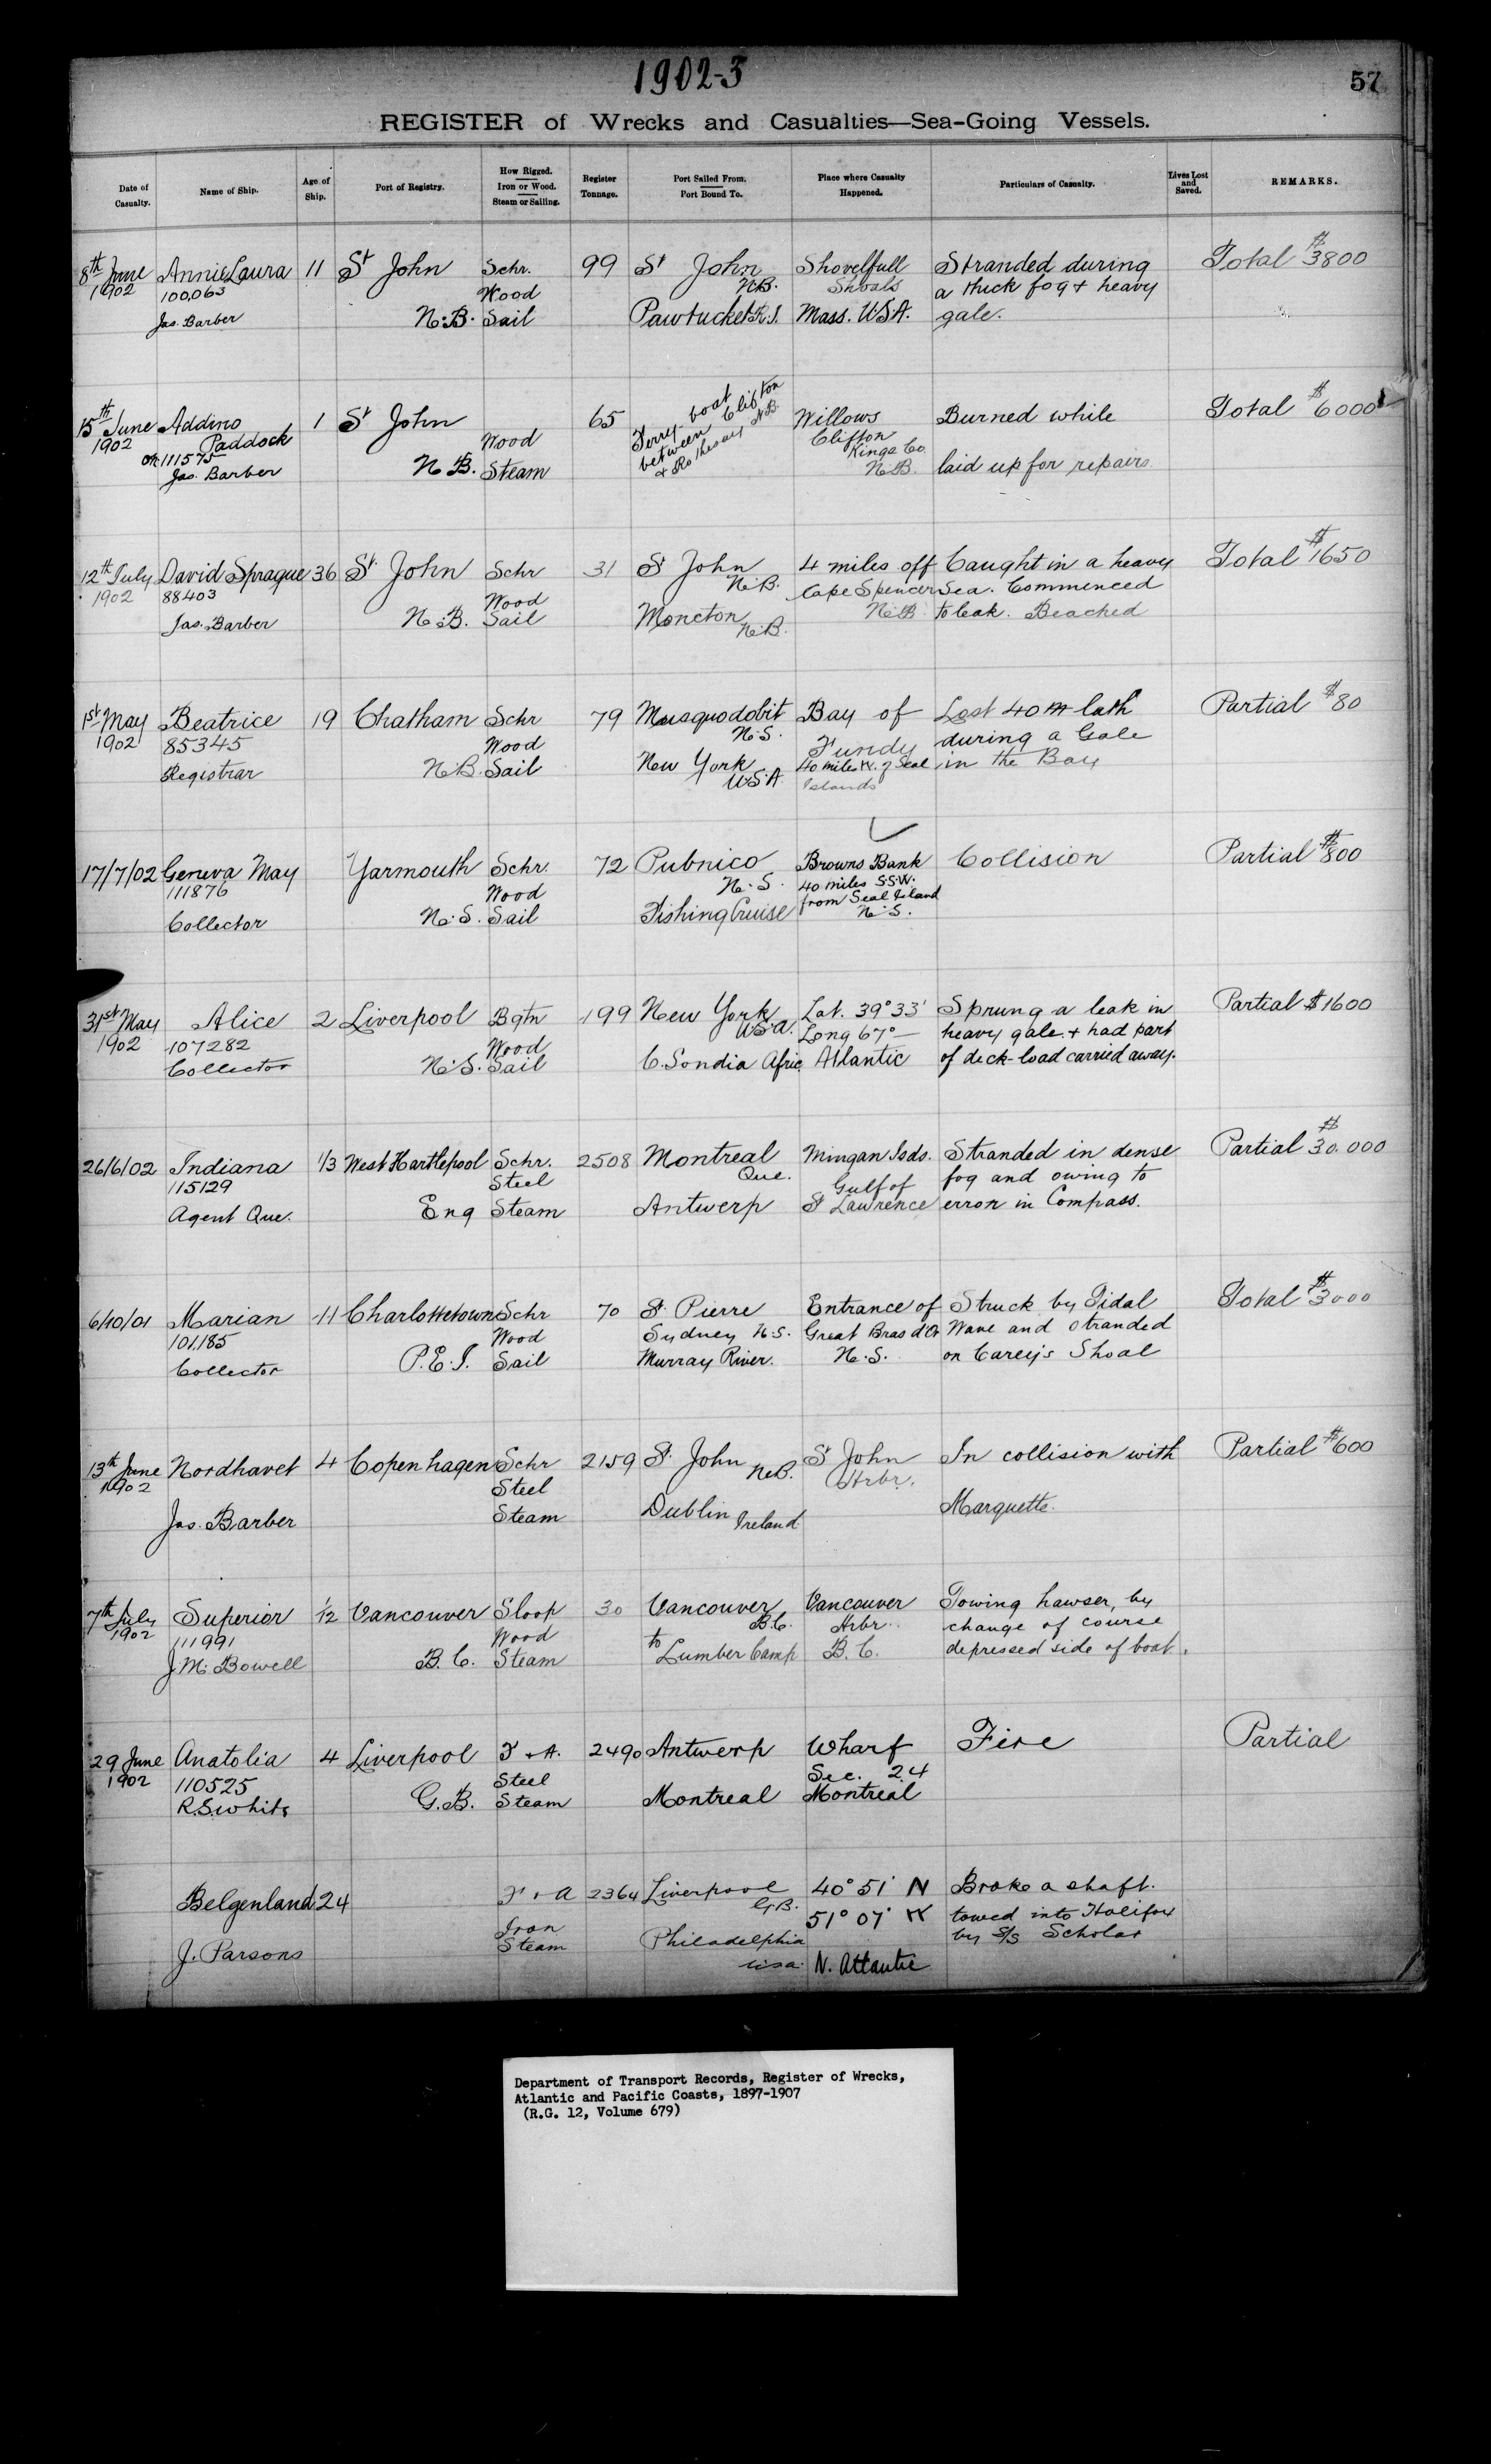 1902-3
57
REGISTER of Wrecks and Casualties—Sea-Going Vessels.
Date of Casualty. Name of Ship. Age of Ship. Port of Registry. How Rigged. Iron or Wood. Steam or Sailing. Register Tonnage. Port Sailed From. Port Bound To. Place where Casualty Happened. Particulars of Casualty. Lives Lost and Saved. REMARKS.
8th June Annie Laura 11 St John Schr. 99 St John Shovelfull Stranded during Total $3800
1902 100,063 Wood N.B. Shoals a thick fog & heavy
Jas. Barber N.B. Sail Pawtucket R.I. Mass. U.S.A. gale.
15th June Addino 1 St John 65 Ferry-boat Willows Burned while Total $6000
1902 Paddock Wood between Clifton Clifton
on 111575 & Rothesay N.B. Kings Co.
Jas. Barber N.B. Steam N.B. laid up for repairs
12th July David Sprague 36 St. John Schr 31 St John 4 miles off Caught in a heavy Total $1650
1902 88403 Wood N.B. Cape Spencer Sea. Commenced
Jas. Barber N.B. Sail Moncton N.B. N.B. to leak. Beached
1st May Beatrice 19 Chatham Schr 79 Musquodobit Bay of Lost 40 m lath Partial $80
1902 85345 Wood N.S. Fundy during a Gale
Registrar N.B. Sail New York 40 miles W. of Seal in the Bay
U.S.A. Islands
17/7/02 Geneva May Yarmouth Schr. 72 Pubnico Browns Bank Collision Partial $800
111876 Wood N.S. 40 miles S.S.W.
Collector N.S. Sail Fishing Cruise from Seal Island
N.S.
31st May Alice 2 Liverpool Bqtn 199 New York Lat. 39° 33' Sprung a leak in Partial $1600
1902 107282 Wood U.S.A. Long 67°— heavy gale & had part
Collector N.S. Sail C. Sondia Afric Atlantic of deck-load carried away.
26/6/02 Indiana 1/3 West Hartlepool Schr. 2508 Montreal Mingan Isds. Stranded in dense Partial $30.000
115129 Steel Que. Gulf of fog and owing to
Agent Que. Eng Steam Antwerp St Lawrence error in Compass.
6/10/01 Marian 11 Charlottetown Schr 70 St. Pierre Entrance of Struck by Tidal Total $3000
101,185 Wood Sydney N.S. Great Bras d'Or Wave and stranded
Collector P.E.I. Sail Murray River. N.S. on Carey's Shoal
13th June Nordhavet 4 Copenhagen Schr 2159 St. John N.B. St John In collision with Partial $600
1902 Steel Hrbr.
Jas. Barber Steam Dublin Ireland Marquette.
7th July Superior 1/2 Vancouver Sloop 30 Vancouver Vancouver Towing hawser, by
1902 111991 Wood B.C. Hrbr. change of course
J.M. Bowell B.C. Steam to Lumber Camp B.C. depressed side of boat.
29 June Anatolia 4 Liverpool F & A. 2490 Antwerp Wharf Fire Partial
1902 110525 Steel Sec. 24
R.S. White G.B. Steam Montreal Montreal
Belgenland 24 F & A 2364 Liverpool 40° 51' N Broke a shaft.
G.B. 51° 07' W towed into Halifax
J. Parsons Iron Steam Philadelphia by S/S Scholar
usa. N. Atlantic
Department of Transport Records, Register of Wrecks,
Atlantic and Pacific Coasts, 1897-1907
(R.G. 12, Volume 679)